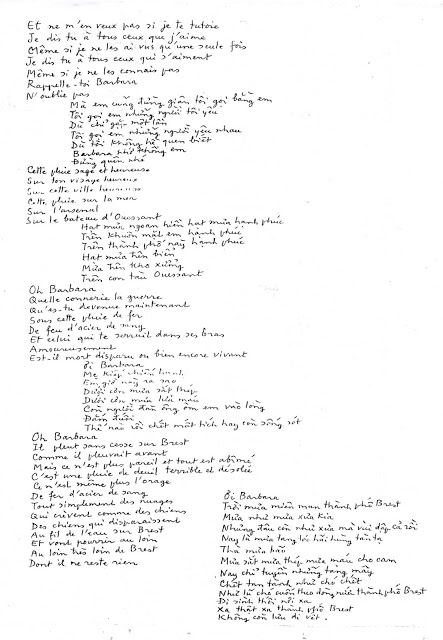 Et ne m'en veux pas si je te tutoie
Je dis tu à tous ceux que j'aime
Même si je ne les ai vus qu'une seule fois
Je dis tu à tous ceux qui s'aiment
Même si je ne les connais pas
Rappelle-toi Barbara
N'oublie pas
Mà em cũng đừng giận tôi gọi bằng em
Tôi gọi em những người tôi yêu
Dù chỉ gặp một lần
Tôi gọi em những người yêu nhau
Dù tôi không hề quen biết
Barbara nhớ không em
Đừng quên nhé
Cette pluie sage et heureuse
Sur ton visage heureux
Sur cette ville heureuse
Cette pluie sur la mer
Sur l'arsenal
Sur le bateau d'Ouessant
Hạt mưa ngoan hiền hạt mưa hạnh phúc
Trên khuôn mặt em hạnh phúc
Trên thành phố này hạnh phúc
Hạt mưa trên biển
Mưa trên kho xưởng
Trên con tàu Ouessant
Oh Barbara
Quelle connerie la guerre
Qu'es-tu devenue maintenant
Sous cette pluie de fer
De feu d'acier de sang
Et celui qui te serrait dans ses bras
Amoureusement
Est-il mort disparu ou bien encore vivant
Ôi Barbara
Mẹ kiếp chiến tranh
Em giờ này ra sao
Dưới cơn mưa sắt thép
Dưới cơn mưa lửa máu
Còn người đàn ông ôm em vào lòng
Đắm đuối
Thế nào rồi chết mất tích hay còn sống sót
Oh Barbara
Il pleut sans cesse sur Brest
Comme il pleuvait avant
Mais ce n'est plus pareil et tout est abîmé
C'est une pluie de deuil terrible et désolée
Ce n'est même plus l'orage
De fer d'acier de sang
Tout simplement des nuages
Qui crèvent comme des chiens
Des chiens qui disparaissent
Au fil de l'eau sur Brest
Et vont pourrir au loin
Au loin très loin de Brest
Dont il ne reste rien
Ôi Barbara
Trời mưa miên man thành phố Brest
Mưa như mưa xưa kia
Nhưng đâu còn như xưa mà vùi dập cả rồi
Nay là mưa tang tóc hãi hùng tan tạ
Thà mưa bão
Mưa sắt mưa thép mưa máu cho cam
Nay chỉ tuyền những tảng mây
Chết tan tành như chó chết
Như lũ chó cuốn theo dòng nước thành phố Brest
Đi sình thối nơi xa
Xa thật xa thành phố Brest
Không còn lưu dư vết.